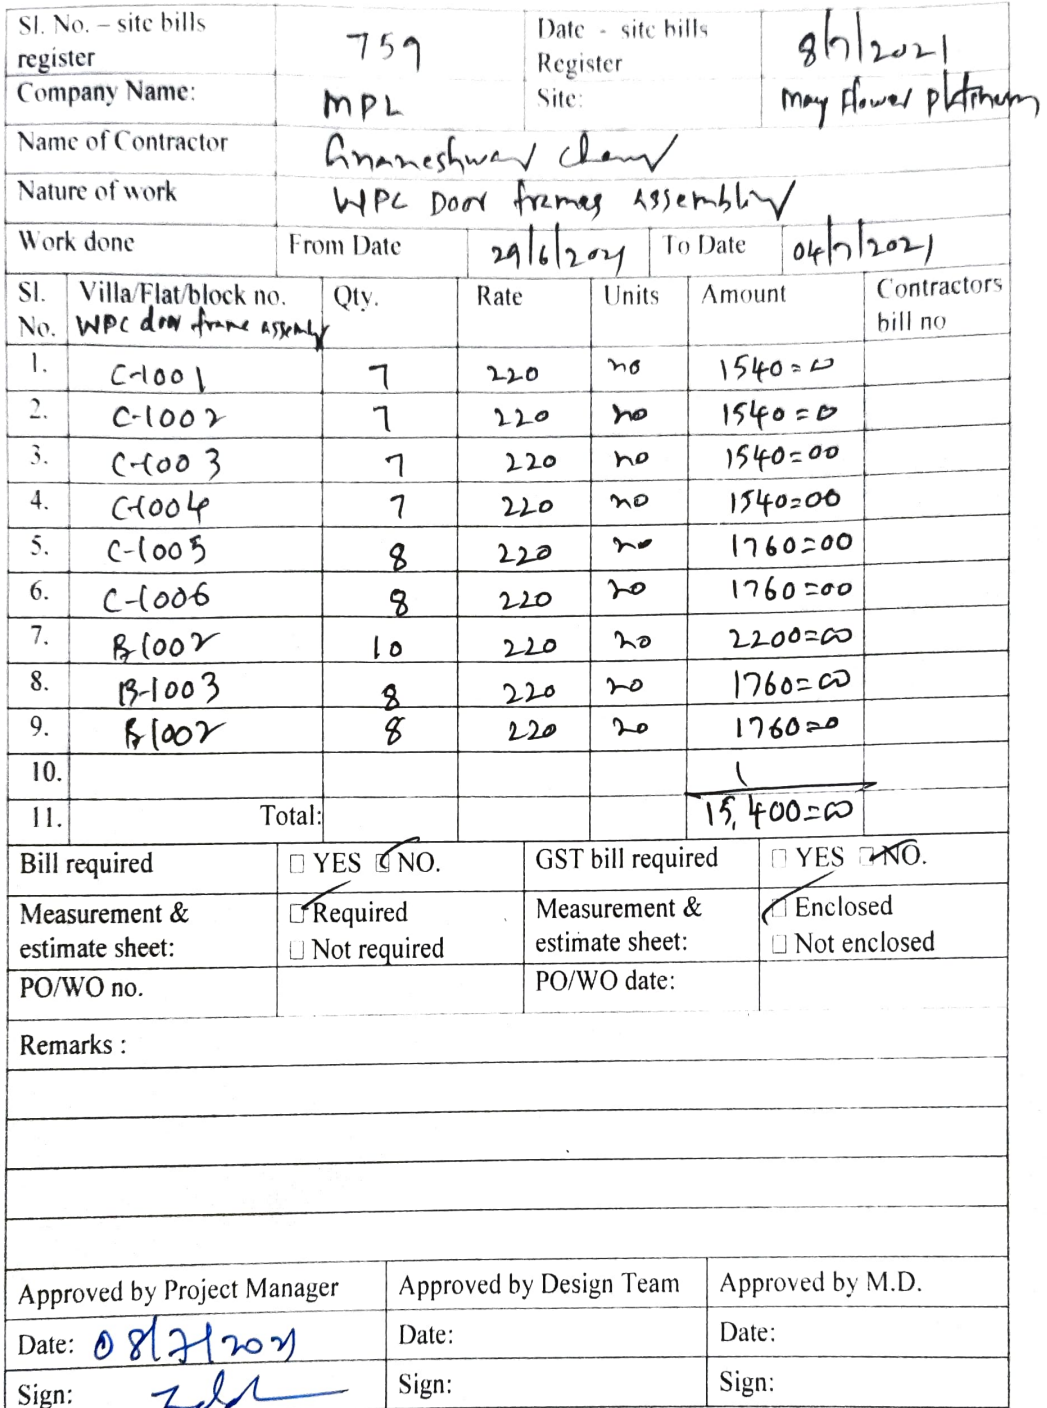 Sl. No. – site bills register 759 Date - site bills Register 8/7/2021
Company Name: MPL Site: May Flower Platinum
Name of Contractor Gnaneshwar Chary
Nature of work WPC Door frames Assembling
Work done From Date 29/6/2021 To Date 04/7/2021
Sl. No. Villa/Flat/block no. WPC door frame assembly Qty. Rate Units Amount Contractors bill no
1. C-1001 7 220 no 1540=00
2. C-1002 7 220 no 1540=00
3. C-1003 7 220 no 1540=00
4. C-1004 7 220 no 1540=00
5. C-1005 8 220 no 1760=00
6. C-1006 8 220 no 1760=00
7. B-1002 10 220 no 2200=00
8. B-1003 8 220 no 1760=00
9. B-1002 8 220 no 1760=00
10.
11. Total: 15,400=00
Bill required YES NO. GST bill required YES NO.
Measurement & estimate sheet: Required Not required Measurement & estimate sheet: Enclosed Not enclosed
PO/WO no. PO/WO date:
Remarks :
Approved by Project Manager Approved by Design Team Approved by M.D.
Date: 08/7/2021 Date: Date:
Sign: Sign: Sign: